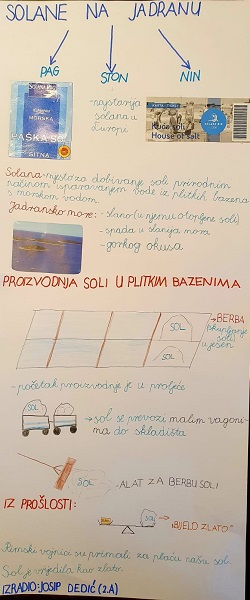 SOLANE NA JADRANU
PAG
STON
NIN
SOLANA PAG
MORSKA
PAŠKA SOL
SITNA
-najstarija
solana u
Europi
Kuća soli
House of Salt
Solana-mjesto za dobivanje soli prirodnim
načinom isparavanjem vode iz plitkih bazena
s morskom vodom.
Jadransko more:
-slano (u njemu otopljene soli)
-spada u slanija mora
-gorkog okusa
PROIZVODNJA SOLI U PLITKIM BAZENIMA
SOL
SOL
BERBA
(skupljanje
soli)
ujesen
-početak proizvodnje je u proljeće
SOL
SOL
sol se prevozi malim vagoni-
ma do skladišta
SOL
-ALAT ZA BERBU SOLI
IZ PROŠLOSTI:
SOL
"BIJELO ZLATO"
Rimski vojnici su primali za plaću našu sol.
Sol je vrijedila kao zlato.
IZRADIO: JOSIP DEDIĆ (2.A)